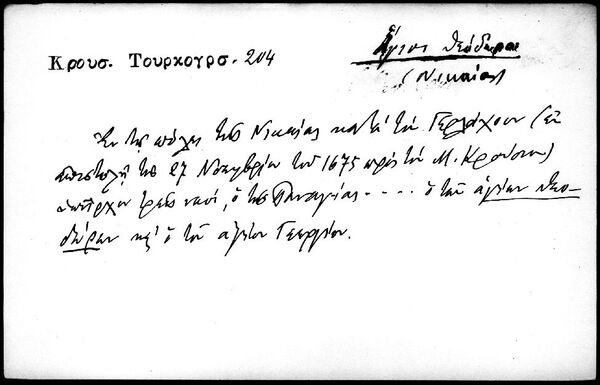 Κρουσ. Τουρκογρσ. 204
Ἅγιοι Θεόδωροι
(Νικαίας)
Ἐν τῇ πόλει τῆς Νικαίας κατὰ τὸν Γερλάχιον (ἐν
ἐπιστολῇ της 27 Νοεμβρίου τοῦ 1675 πρὸς τὸν Μ. Κρούσιον)
ὑπῆρχον τρεῖς ναοί, ὁ τῆς Παναγίας - - - - . ὁ τῶν ἁγίων Θεο-
δώρων κ' ὁ τοῦ ἁγίου Γεωργίου.